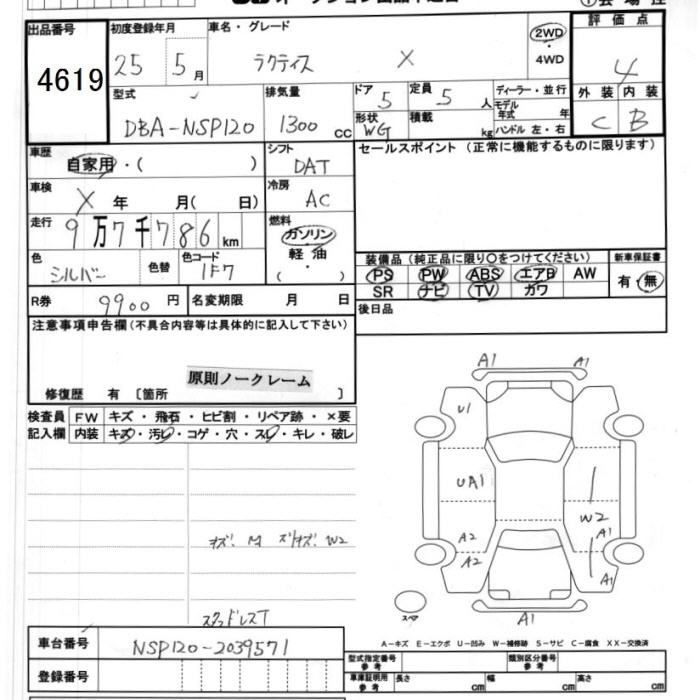 出品番号
4619
初度登録年月
25 5月
車名・グレード
ラクティス X
2WD
・
4WD
評価点
4
型式
DBA-NSP120
排気量
1300 cc
ドア
5
定員
5 人
ディーラー・並行
モデル年式 年
形状
WG
積載 kg
ハンドル 左・右
外装 内装
C B
車歴
自家用・( )
シフト
DAT
セールスポイント (正常に機能するものに限ります)
車検
X 年 月( 日)
冷房
AC
走行
9万7千786km
燃料
ガソリン
軽油
( ・ )
色
シルバー
色替
色コード
1F7
装備品 (純正品に限り〇をつけてください)
新車保証書
PS PW ABS エアB AW
SR ナビ TV カワ
有・無
R券
9900 円
名変期限 月 日
後日品
注意事項申告欄(不具合内容等は具体的に記入して下さい)
原則ノークレーム
修復歴 有 〔箇所 〕
検査員
記入欄
FW キズ・飛石・ヒビ割・リペア跡・×要
内装 キズ・汚レ・コゲ・穴・スレ・キレ・破レ
A1
A1
U1
UA1
W2
A2
A1
A2
A1
A1
スペア
スタッドレスT
A-キズ E-エクボ U-凹み W-補修跡 S-サビ C-腐食 XX-交換済
車台番号
NSP120-2039571
型式指定番号
参考
類別区分番号
参考
登録番号
車庫証明用
参考
長さ cm
幅 cm
高さ cm